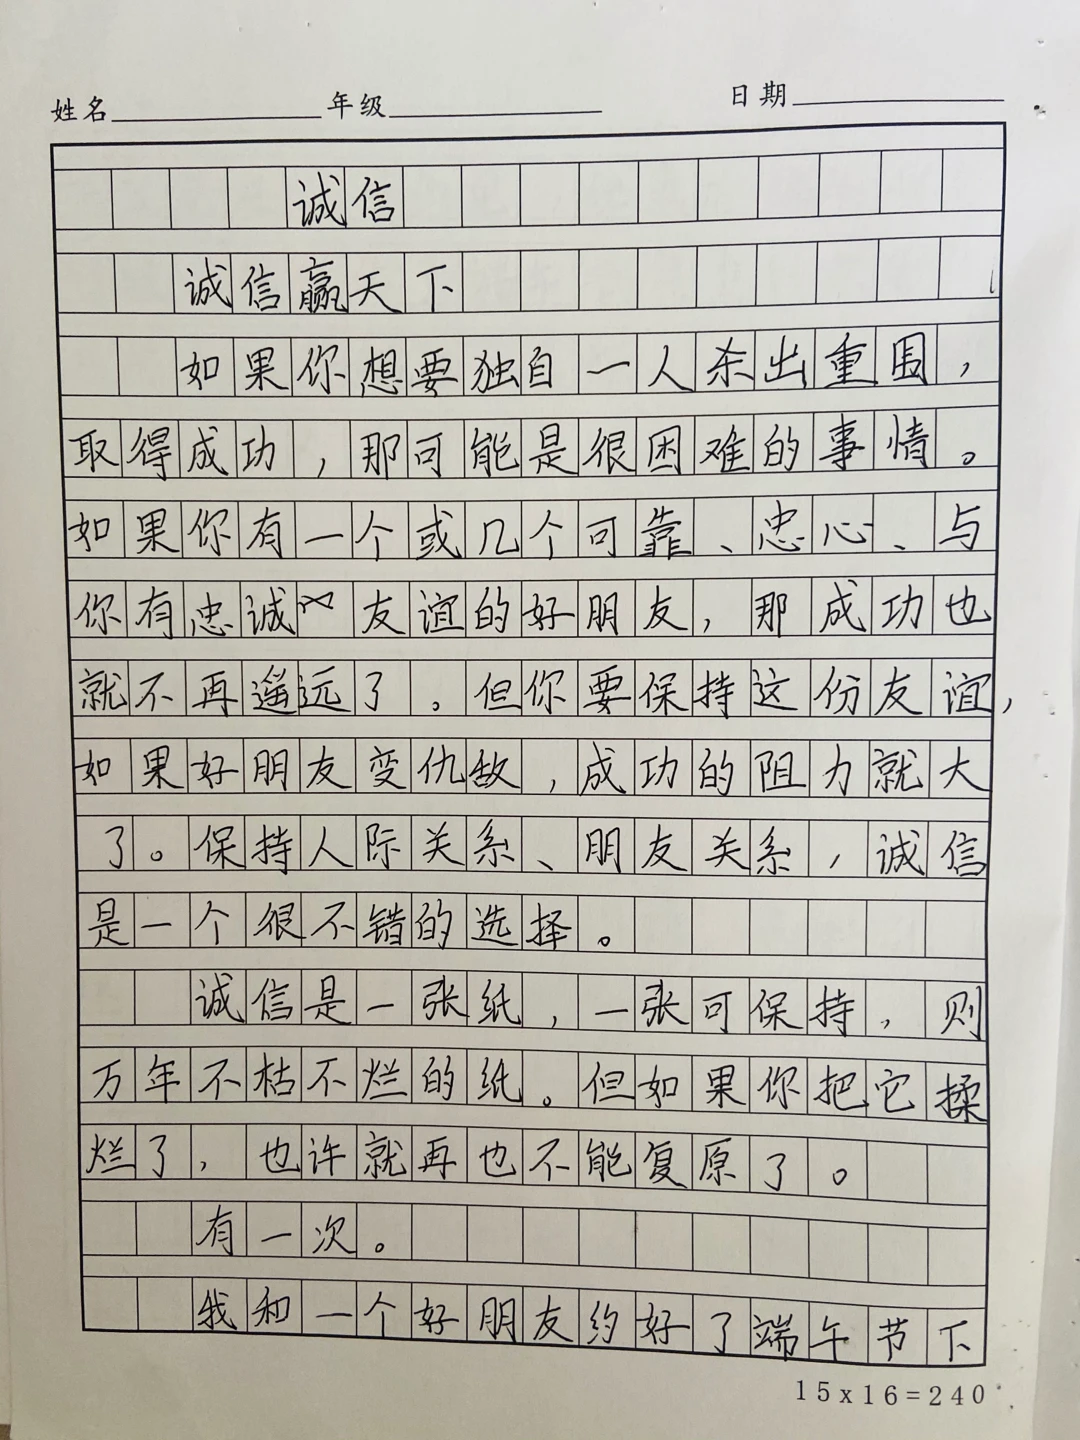 姓名 年级 日期
诚信
诚信赢天下
如果你想要独自一人杀出重围，
取得成功，那可能是很困难的事情。
如果你有一个或几个可靠、忠心、与
你有忠诚友谊的好朋友，那成功也
就不再遥远了。但你要保持这份友谊，
如果好朋友变仇敌，成功的阻力就大
了。保持人际关系、朋友关系，诚信
是一个很不错的选择。
诚信是一张纸，一张可保持，则
万年不枯不烂的纸。但如果你把它揉
烂了，也许就再也不能复原了。
有一次。
我和一个好朋友约好了端午节下
15x16=240